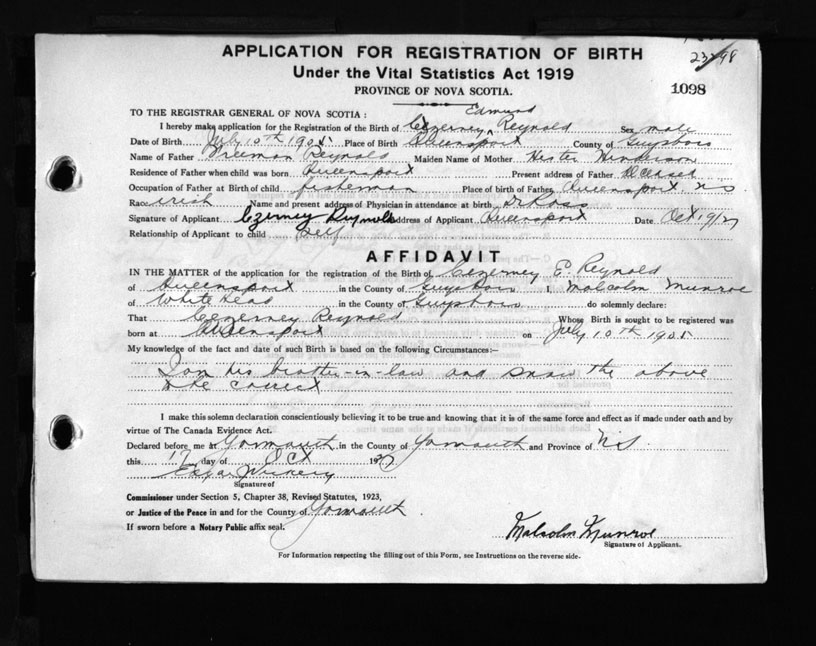 APPLICATION FOR REGISTRATION OF BIRTH
Under the Vital Statistics Act 1919
PROVINCE OF NOVA SCOTIA.
1098
TO THE REGISTRAR GENERAL OF NOVA SCOTIA:
Edmund
I hereby make application for the Registration of the Birth of Czerney Reynold Sex male
Date of Birth July 10th 1905 Place of Birth Queensport County of Guysboro
Name of Father Freeman Reynold Maiden Name of Mother Hester Henderson
Residence of Father when child was born Queensport Present address of Father Deceased
Occupation of Father at Birth of child fisherman Place of birth of Father Queensport NS
Race irish Name and present address of Physician in attendance at birth dr Ross
Signature of Applicant Czerney Reynold Address of Applicant Queensport Date Oct 19/27
Relationship of Applicant to child Self
AFFIDAVIT
IN THE MATTER of the application for the registration of the Birth of Czerney E. Reynold
of Queensport in the County of Guysboro I, Malcolm Munroe
of White Head in the County of Guysboro do solemnly declare:
That Czerney Reynold Whose Birth is sought to be registered was
born at Queensport on July 10th 1905
My knowledge of the fact and date of such Birth is based on the following Circumstances:—
I am his brother-in-law and know the above
to be correct
I make this solemn declaration conscientiously believing it to be true and knowing that it is of the same force and effect as if made under oath and by
virtue of The Canada Evidence Act.
Declared before me at Yarmouth in the County of Yarmouth and Province of NS
this 17 day of Oct 1927
Signature of
Commissioner under Section 5, Chapter 38, Revised Statutes, 1923,
or Justice of the Peace in and for the County of Yarmouth
If sworn before a Notary Public affix seal.
Malcolm Munroe
Signature of Applicant.
For Information respecting the filling out of this Form, see Instructions on the reverse side.